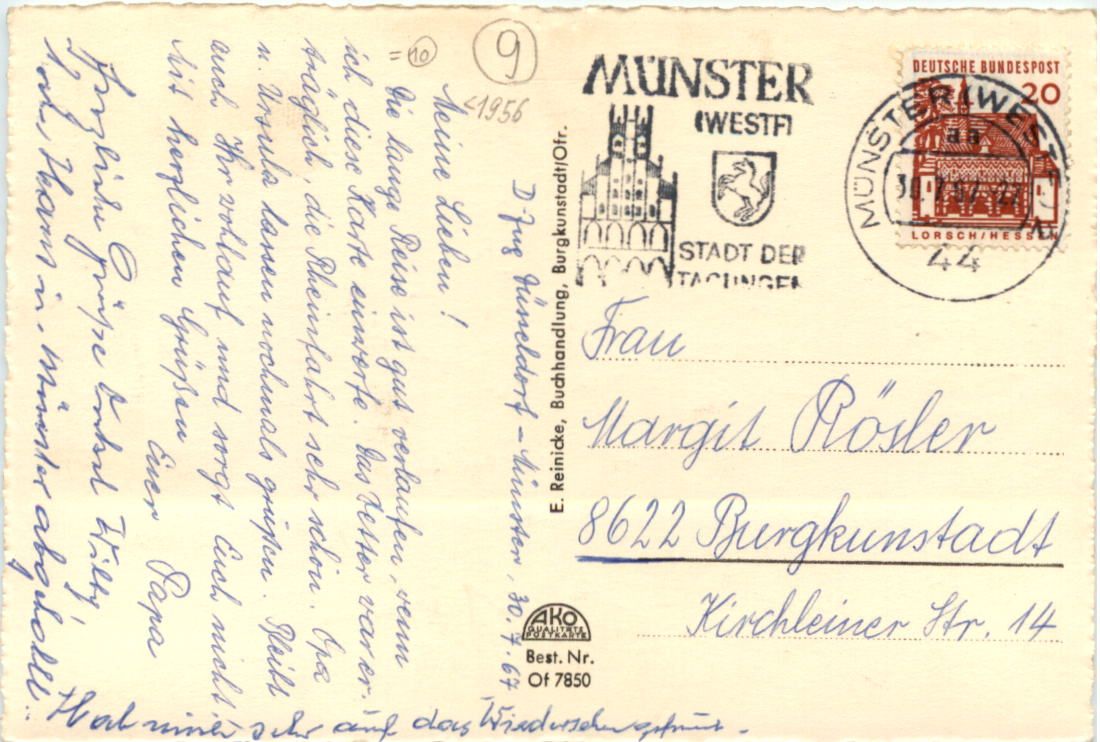 = 10
9
<1956
D-Zug Düsseldorf – Münster, 30.7.67
Meine Lieben!
Die lange Reise ist gut verlaufen, wenn
ich diese Karte einwerfe. Das Wetter war er-
träglich, die Rheinfahrt sehr schön. Opa
u. Ursula lassen nochmals grüßen. Bleibt
auch Ihr wohlauf und sorgt Euch nicht!
Mit herzlichen Grüßen Euer Papa
Herzliche Grüße Willy
in Münster abgeholt.
Hat sehr auf das Wiedersehen gefreut.
E. Reinicke, Buchhandlung, Burgkunstadt/Ofr.
AKO
QUALITÄTS
POSTKARTE
Best. Nr.
Of 7850
MÜNSTER
(WESTF)
STADT DER
TAGUNGEN
DEUTSCHE BUNDESPOST
20
LORSCH/HESSEN
MÜNSTER (WESTF) 1
aa
30.7.67
44
Frau
Margit Rösler
8622 Burgkunstadt
Kirchleiner Str. 14